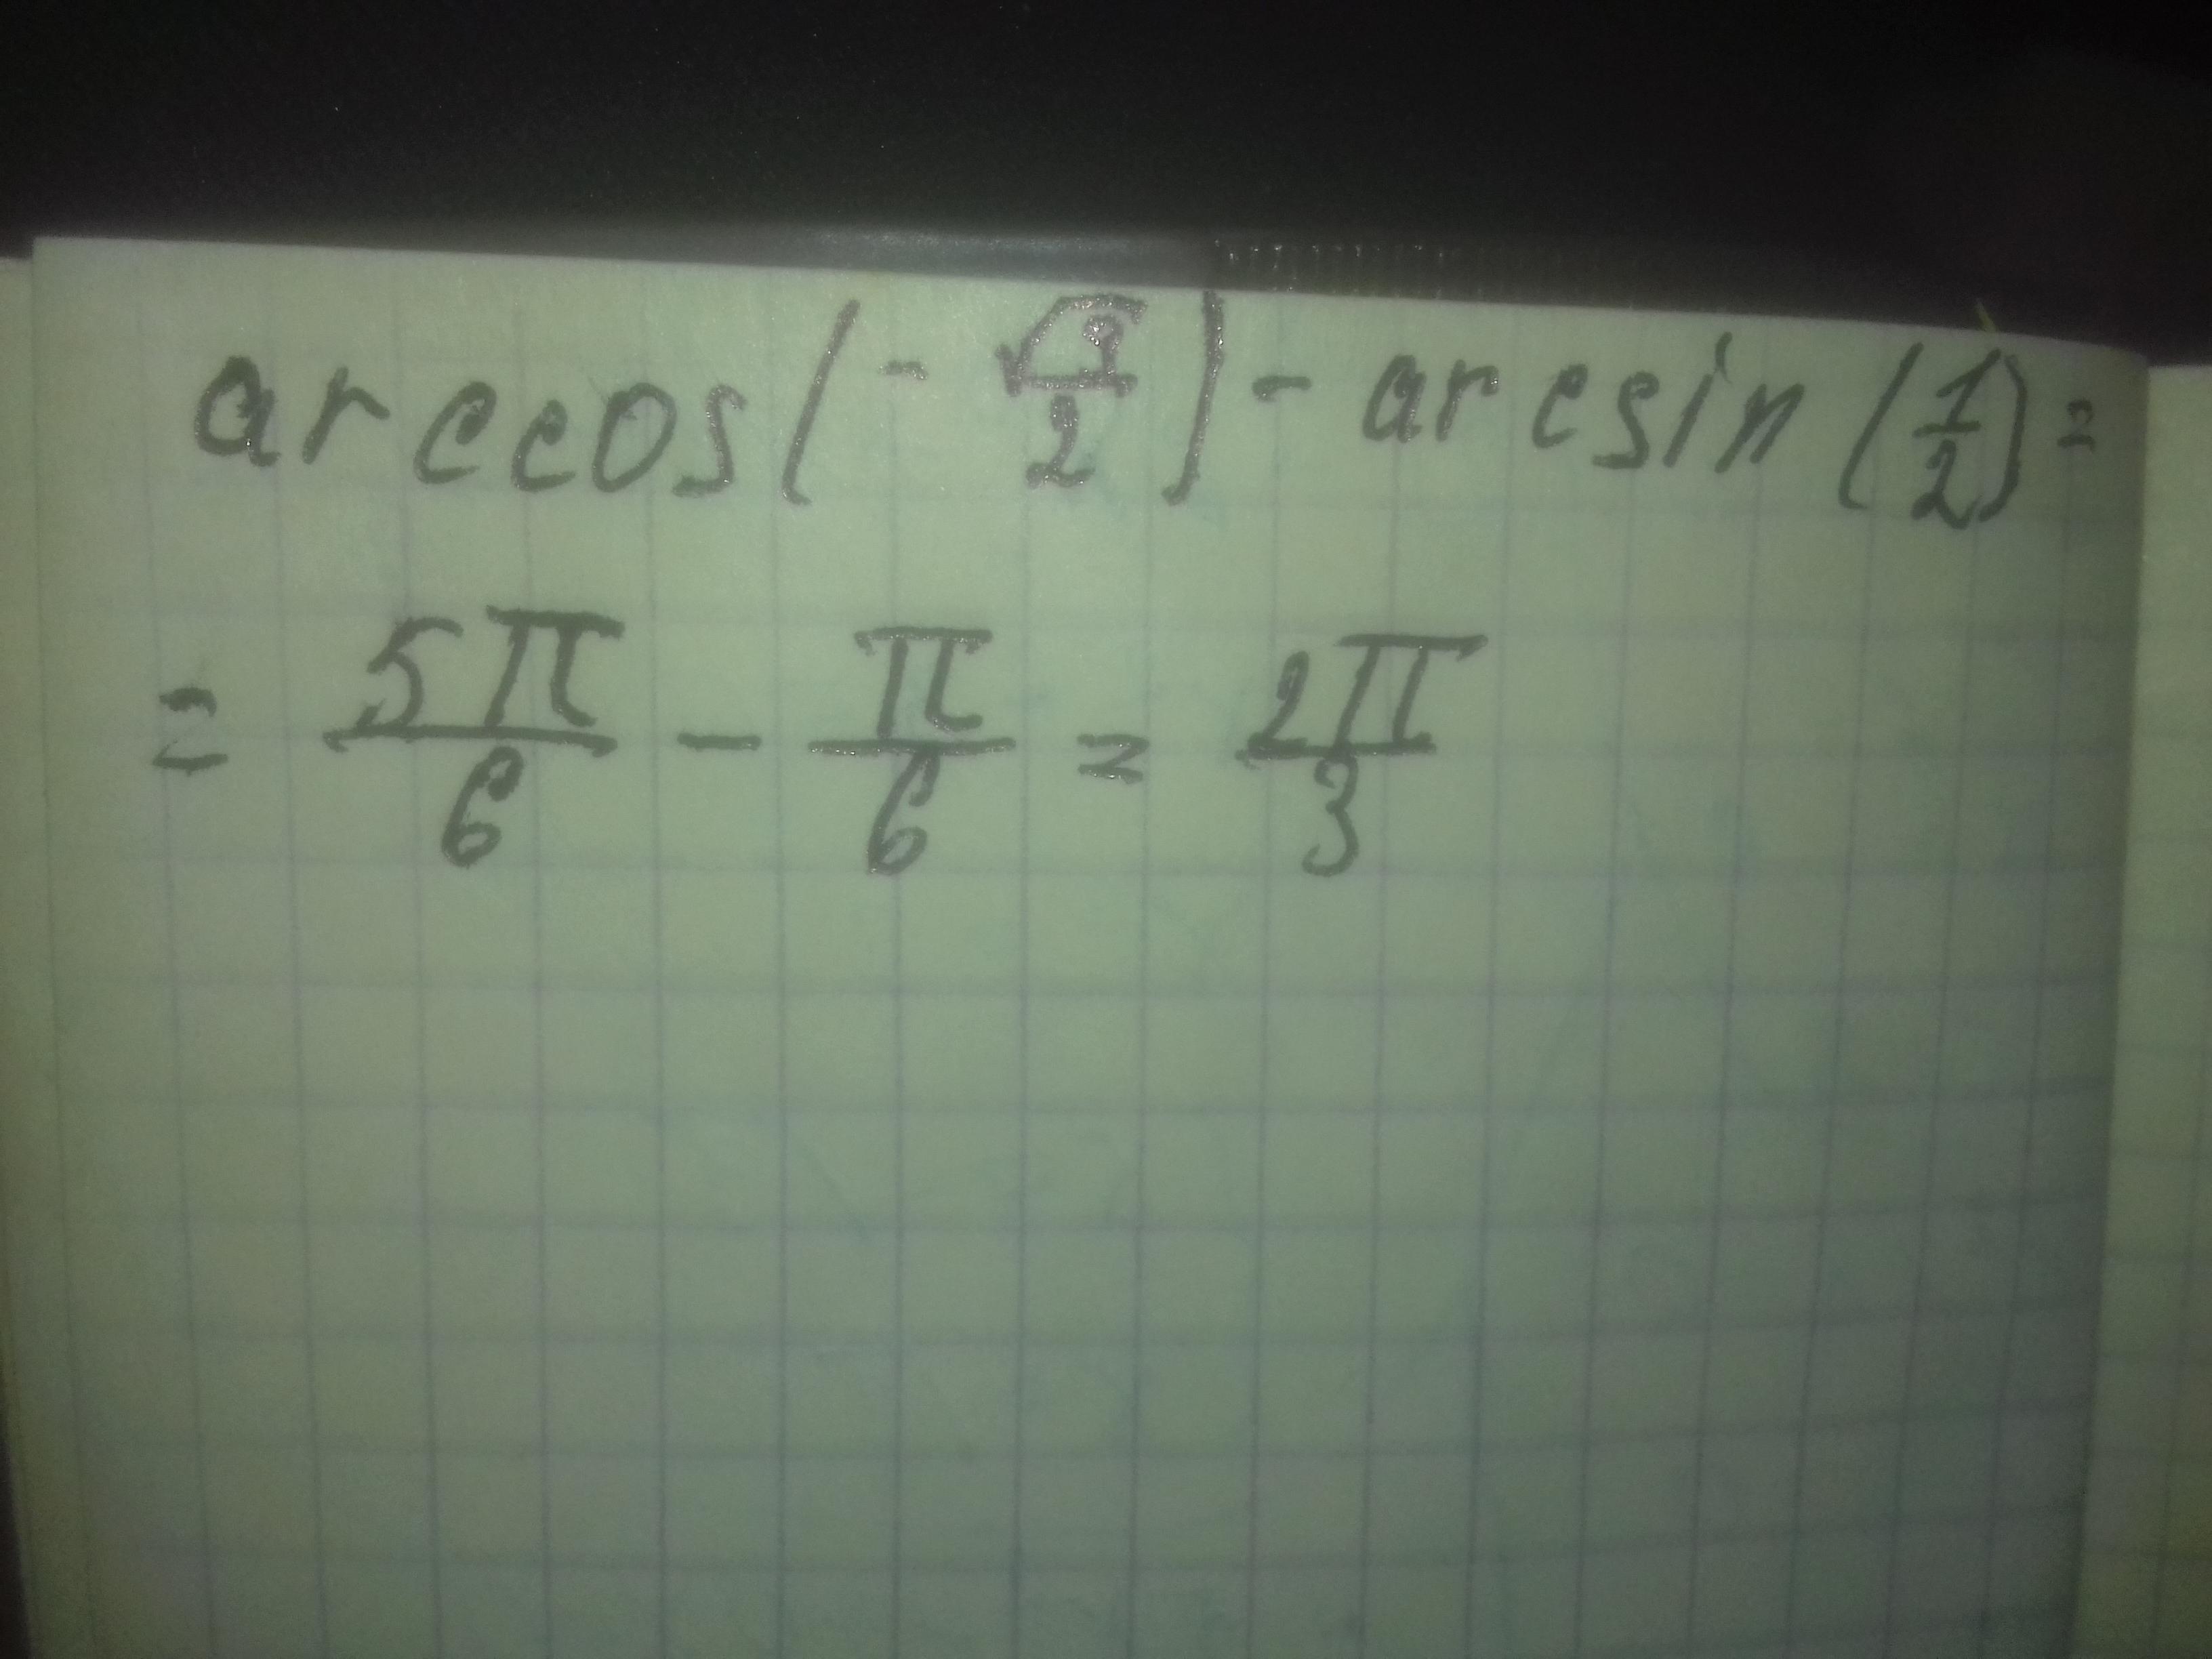 arccos(-√3/2) - arcsin(1/2) =
= 5π/6 - π/6 = 2π/3